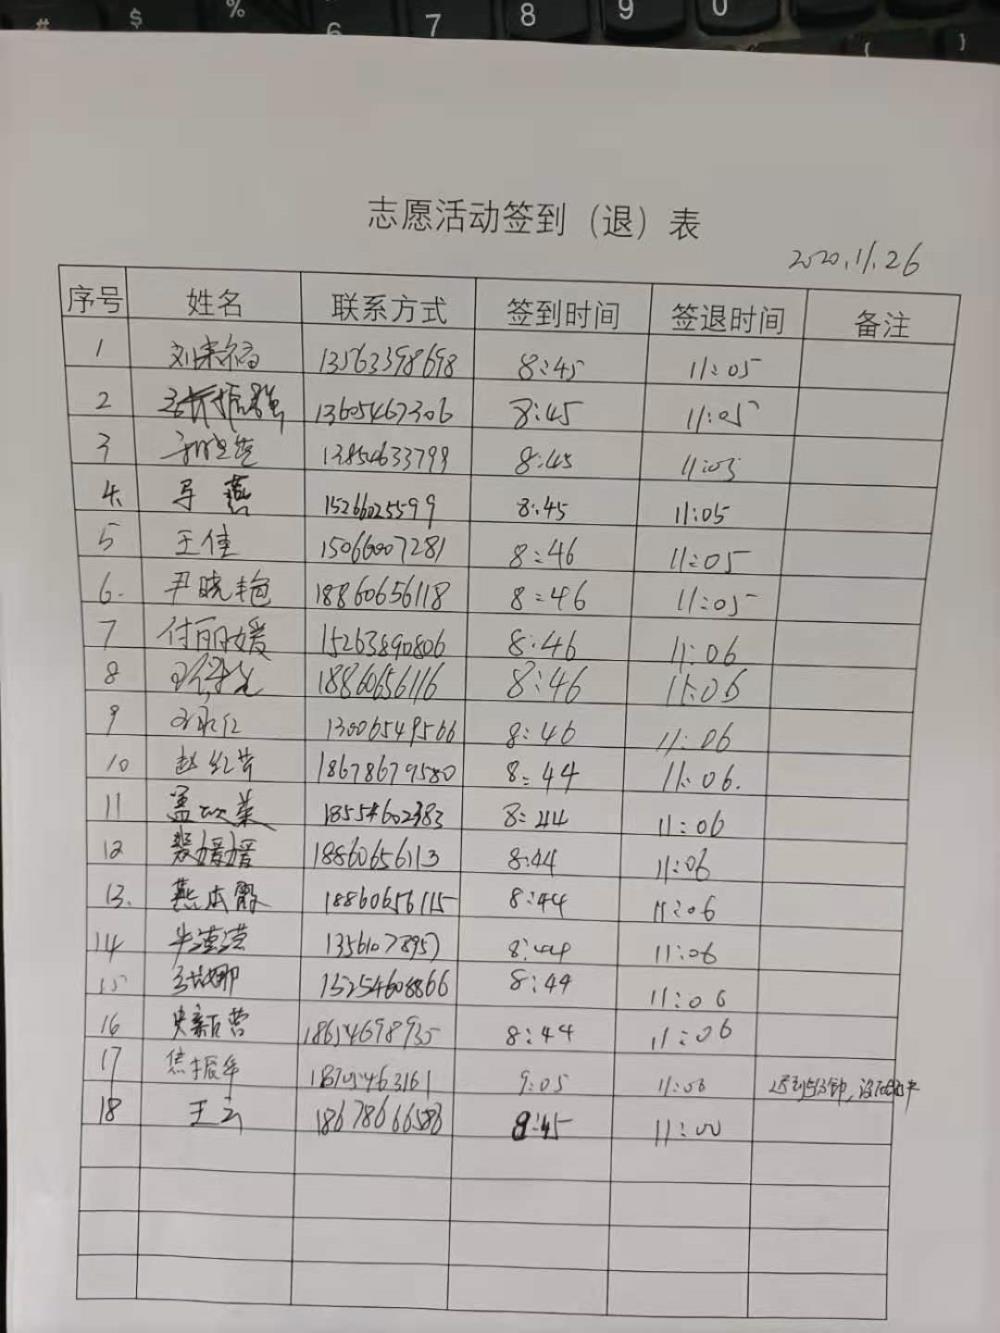 志愿活动签到（退）表
2020.11.26
序号 姓名 联系方式 签到时间 签退时间 备注
1 13563398698 8:45 11:05
2 13605467306 8:45 11:05
3 13854633799 8:45 11:05
4. 燕 15266025599 8:45 11:05
5 王佳 15066007281 8:46 11:05
6. 尹晓艳 18860656118 8:46 11:05
7 付丽媛 15263890806 8:46 11:06
8 18860656116 8:46 11:06
9 13006549566 8:46 11:06
10 赵红芳 18678679580 8:44 11:06.
11 孟 18554602383 8:44 11:06
12 裴媛媛 18860656113 8:44 11:06
13. 燕本霞 18860656115 8:44 11:06
14 8:44 11:06
15 娜 15254608866 8:44 11:06
16 史新营 18654698935 8:44 11:06
17 焦振华 9:05 11:06 迟到
18 王云 8:45 11:00